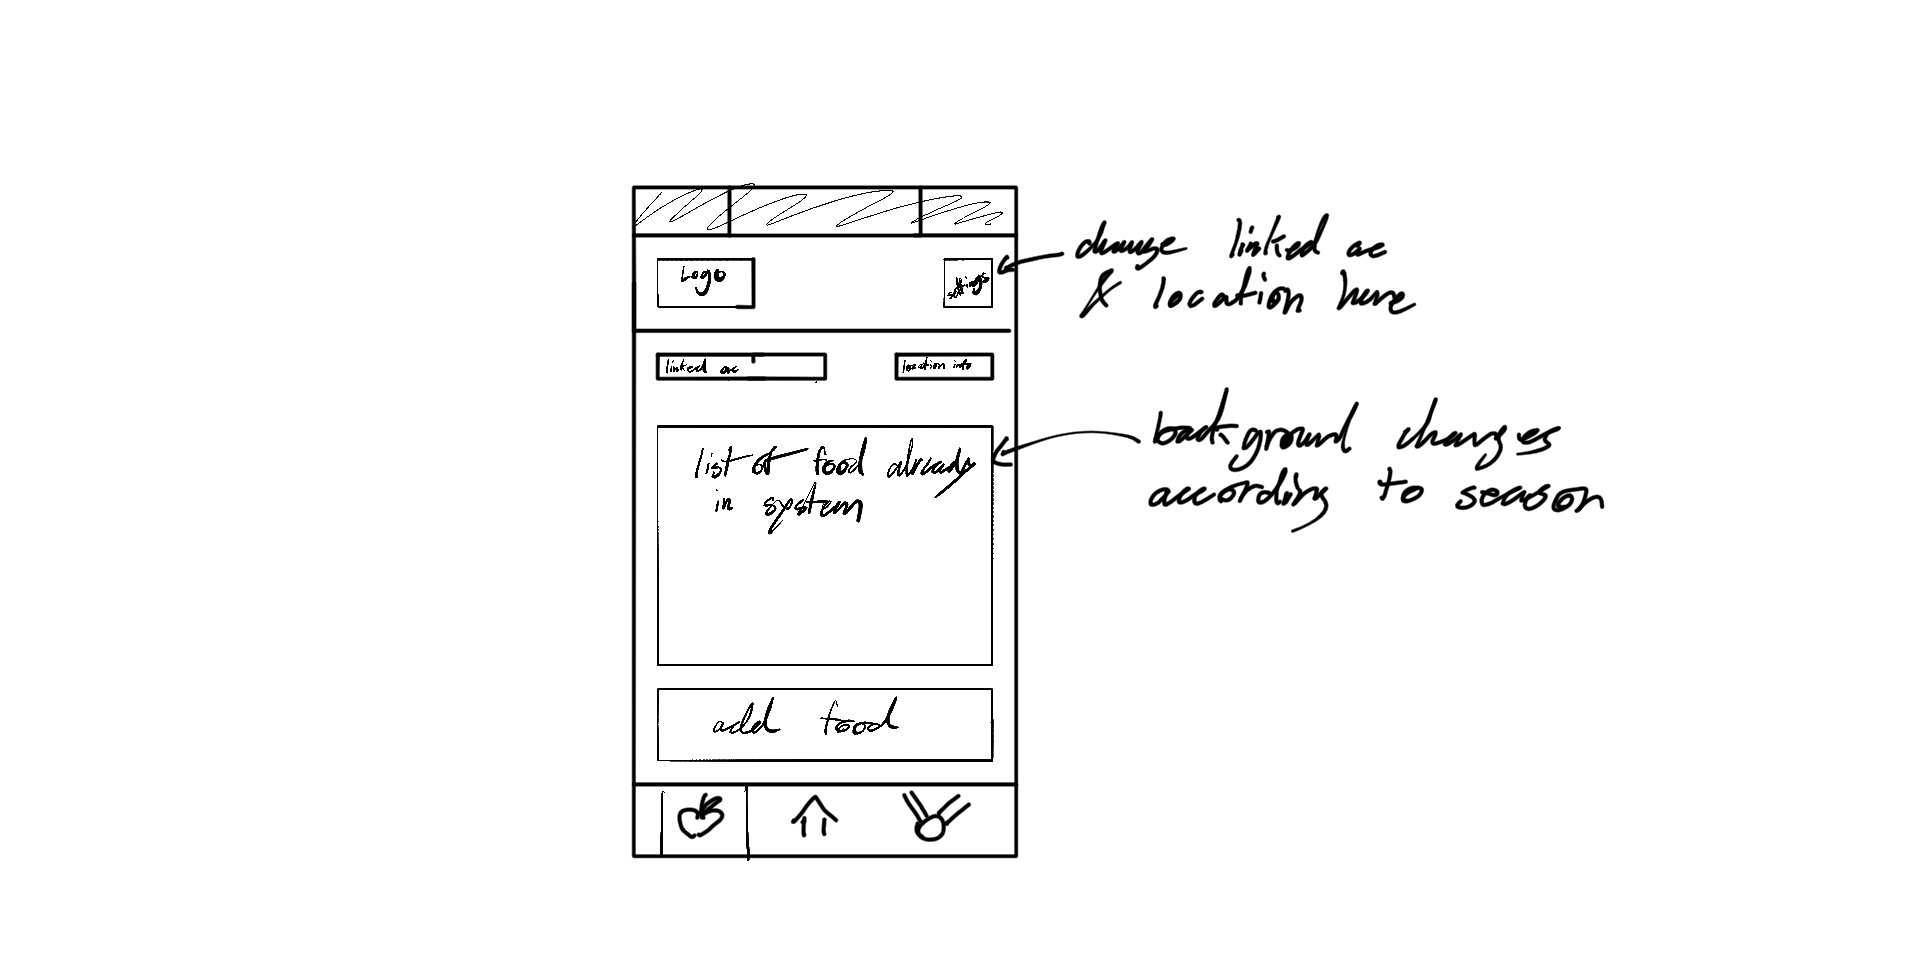 Logo
settings
change linked ac
& location here
linked ac
location info
list of food already
in system
background changes
according to season
add food